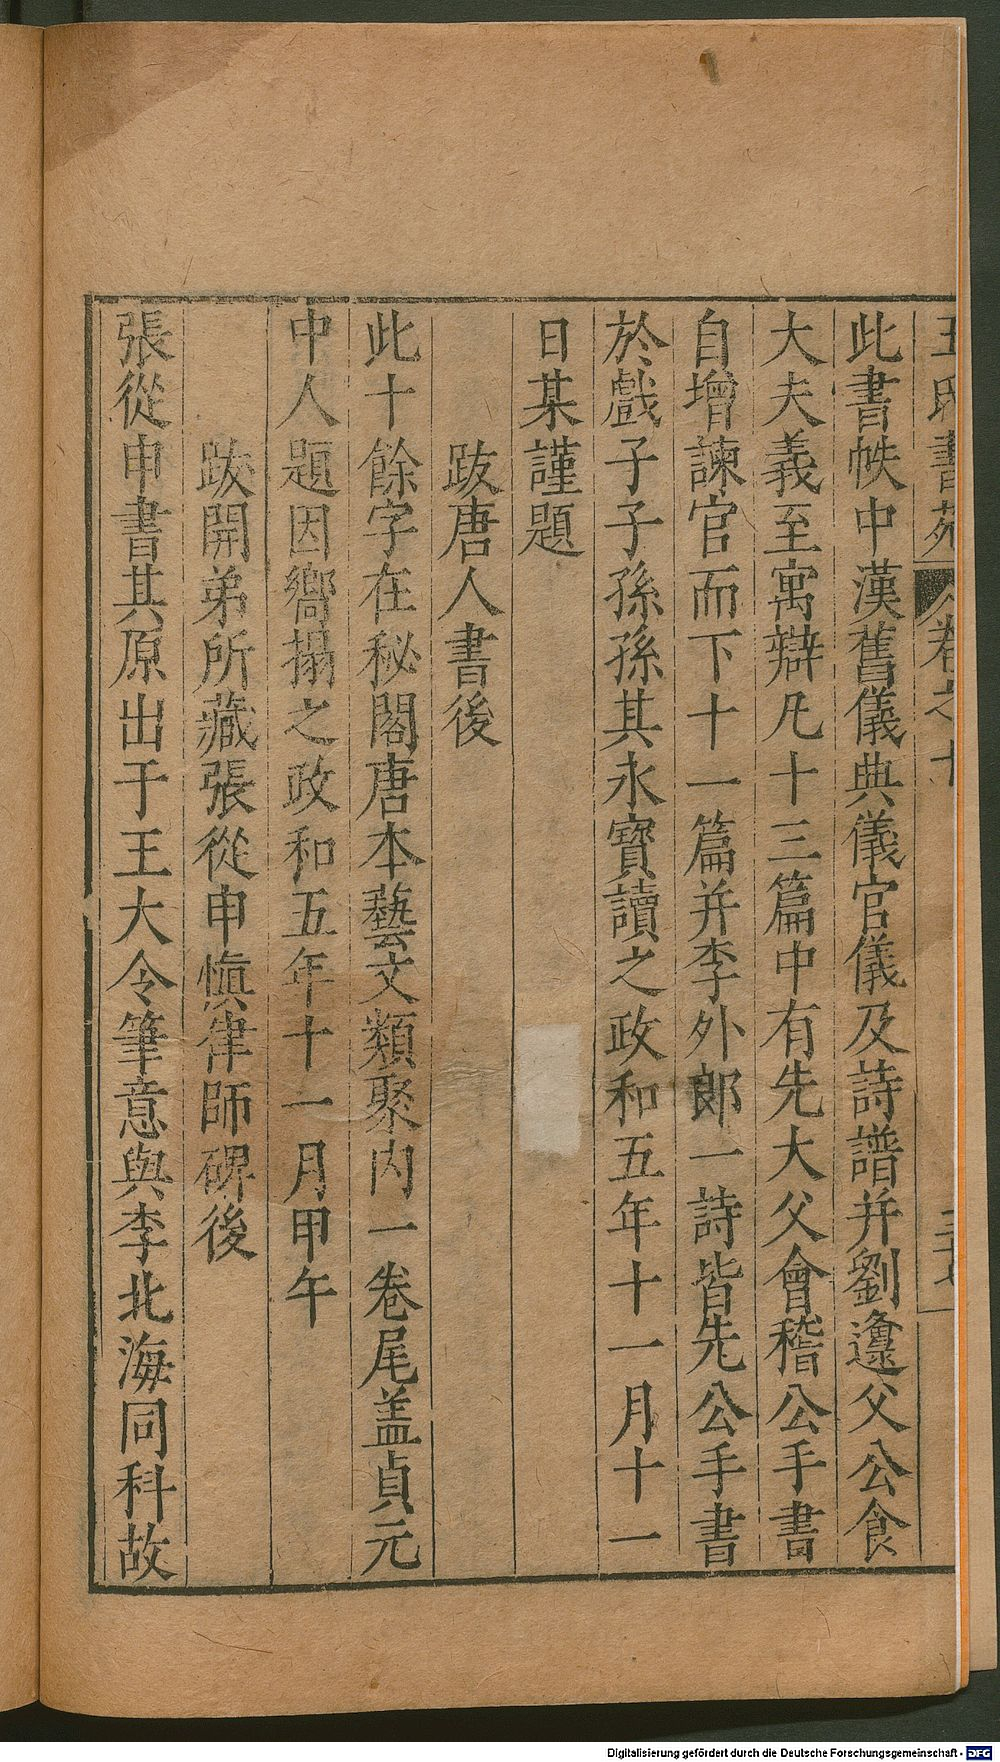 王氏書苑 卷之十
此書帙中漢舊儀典儀官儀及詩譜并劉邍父公食
大夫義至寓辯凡十三篇中有先大父會稽公手書
自增諫官而下十一篇并李外郎一詩皆先公手書
於戲子子孫孫其永寶讀之政和五年十一月十一
日某謹題
跋唐人書後
此十餘字在秘閣唐本藝文類聚内一卷尾盖貞元
中人題因嚮搨之政和五年十一月甲午
跋開弟所藏張從申慎律師碑後
張從申書其原出于王大令筆意與李北海同科故
Digitalisierung gefördert durch die Deutsche Forschungsgemeinschaft - DFG